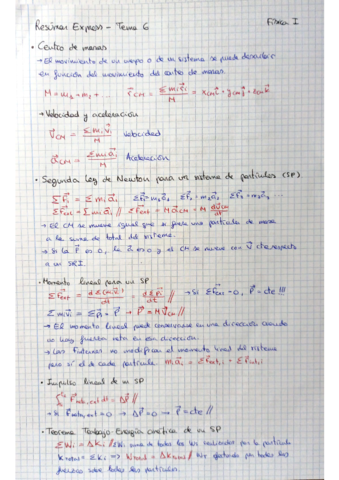 Resumen Express - Tema 6 Física I
• Centro de masas
→ El movimiento de un cuerpo o de un sistema se puede describir
en función del movimiento del centro de masas.
M = m₁ + m₂ + ... r⃗CM = Σmᵢr⃗ᵢ / M = xCM î + yCM ĵ + zCM k̂
→ Velocidad y aceleración
V⃗CM = Σmᵢv⃗ᵢ / M velocidad
a⃗CM = Σmᵢa⃗ᵢ / M Aceleración
• Segunda Ley de Newton para un sistema de partículas (SP)
→ El CM se mueve igual que si fuera una partícula de masa
a la suma de total del sistema.
→ Si la F⃗ es 0, la a⃗ es 0 y el CM se mueve con V⃗ cte respecto
a un SRI.
• Momento lineal para un SP
→ Si ΣF⃗ext = 0, P⃗ = cte !!!
Σmᵢv⃗ᵢ = Σp⃗ᵢ = P⃗ → P⃗ = M V⃗CM //
→ El momento lineal puede conservarse en una dirección cuando
no hay fuerzas neta en esa dirección.
→ Las Finternas no modifican el momento lineal del sistema
pero sí el de cada partícula.
• Impulso lineal de un SP
→ Si F⃗neta,ext = 0 → ΔP⃗ = 0 → P⃗ = cte //
• Teorema Trabajo-Energía cinética de un SP
ΣWᵢ = ΔKᵢ // ΣWᵢ suma de todos los realizados por la partícula
Wᵢ efectuado por todas las
fuerzas sobre todas las partículas.